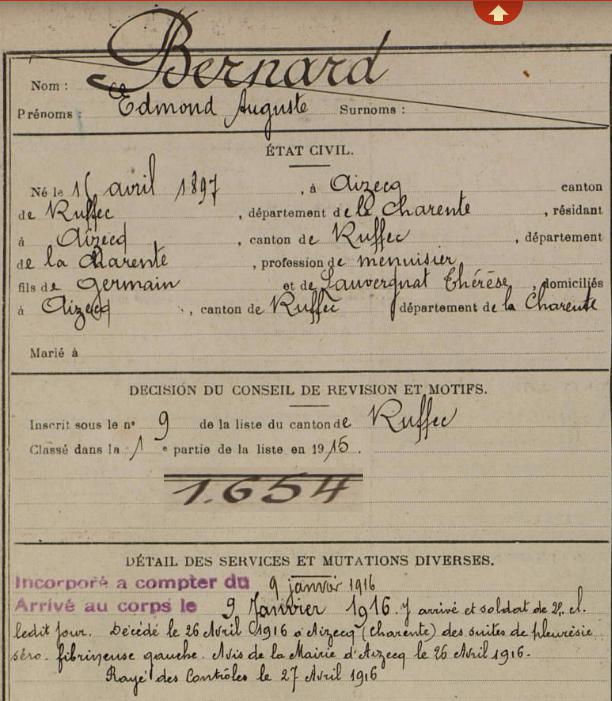 Nom : Bernard
Prénoms : Edmond Auguste Surnoms :
ÉTAT CIVIL.
Né le 16 avril 1897, à Aizecq canton
de Ruffec, département de la Charente, résidant
à Aizecq, canton de Ruffec, département
de la Charente, profession de menuisier
fils de Germain et de Lauvergnat Thérèse, domiciliés
à Aizecq, canton de Ruffec département de la Charente
Marié à
DECISION DU CONSEIL DE REVISION ET MOTIFS.
Inscrit sous le n° 9 de la liste du canton de Ruffec
Classé dans la 1e partie de la liste en 1915.
1.654
DÉTAIL DES SERVICES ET MUTATIONS DIVERSES.
Incorporé a compter du 9 janvier 1916
Arrivé au corps le 9 Janvier 1916. Y arrivé et soldat de 2e cl.
ledit jour. Décédé le 26 Avril 1916 à Aizecq (Charente) des suites de pleurésie
séro-fibrineuse gauche. Avis de la Mairie d'Aizecq le 26 Avril 1916.
Rayé des Contrôles le 27 Avril 1916